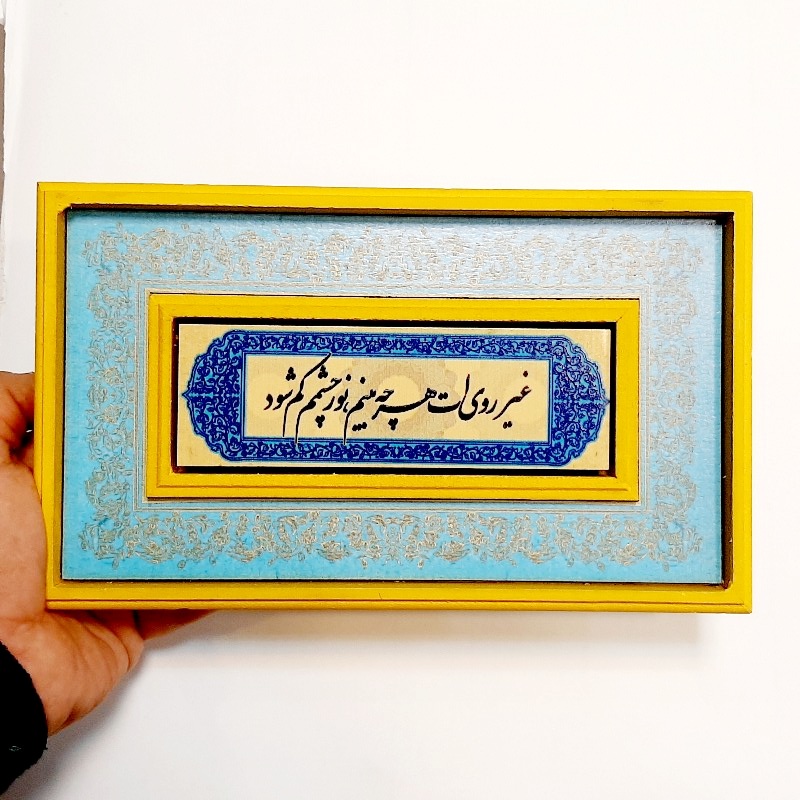 غیر روی ات هر چه بینم، نور چشمم کم شود